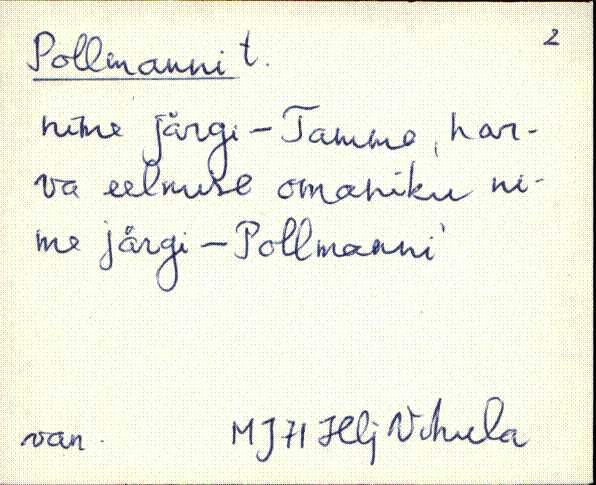 2
Pollmanni t.
nime järgi – Tamme, har-
va eelmise omaniku ni-
me järgi – Pollmanni
van. MJ 71 Hlj Vihula